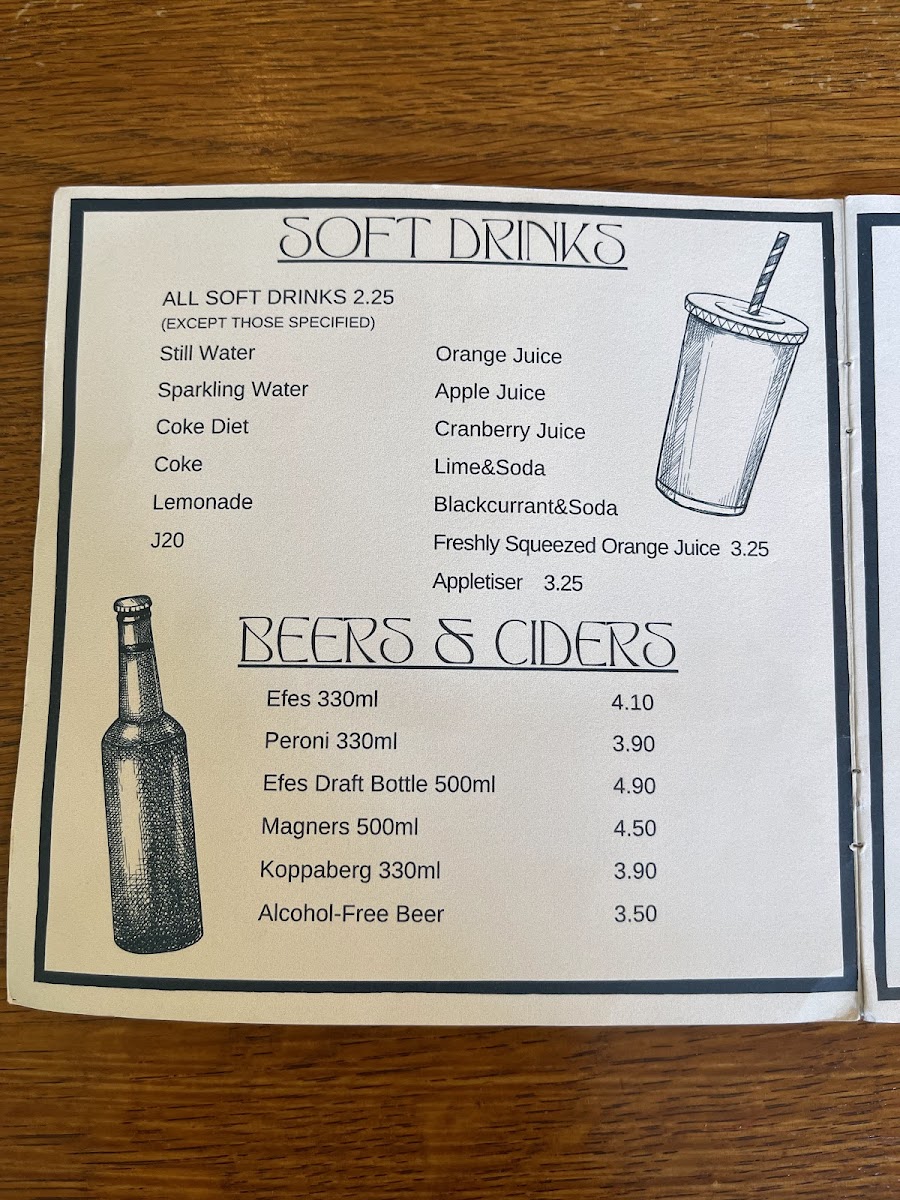 SOFT DRINKS
ALL SOFT DRINKS 2.25
(EXCEPT THOSE SPECIFIED)
Still Water
Sparkling Water
Coke Diet
Coke
Lemonade
J20
Orange Juice
Apple Juice
Cranberry Juice
Lime&Soda
Blackcurrant&Soda
Freshly Squeezed Orange Juice 3.25
Appletiser 3.25
BEERS & CIDERS
Efes 330ml 4.10
Peroni 330ml 3.90
Efes Draft Bottle 500ml 4.90
Magners 500ml 4.50
Koppaberg 330ml 3.90
Alcohol-Free Beer 3.50